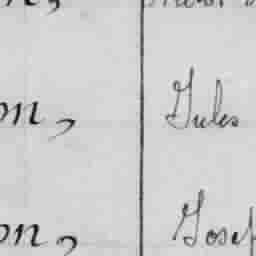 on, Jules
on, Josep